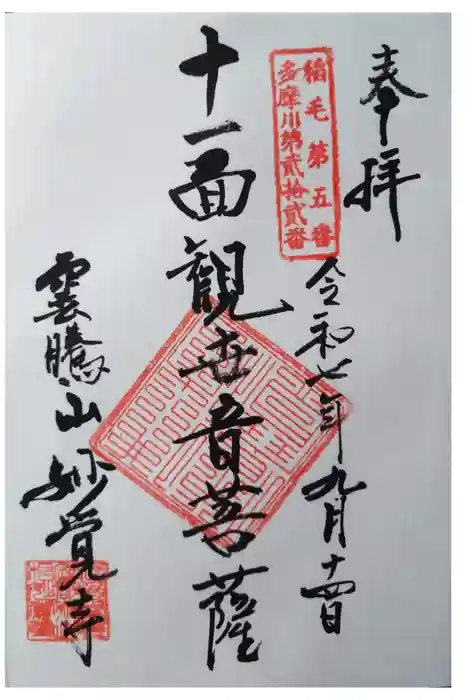 奉拝
令和七年九月十四日
稲毛第五番
多摩川第貳拾貳番
十一面観世音菩薩
雲騰山妙覚寺